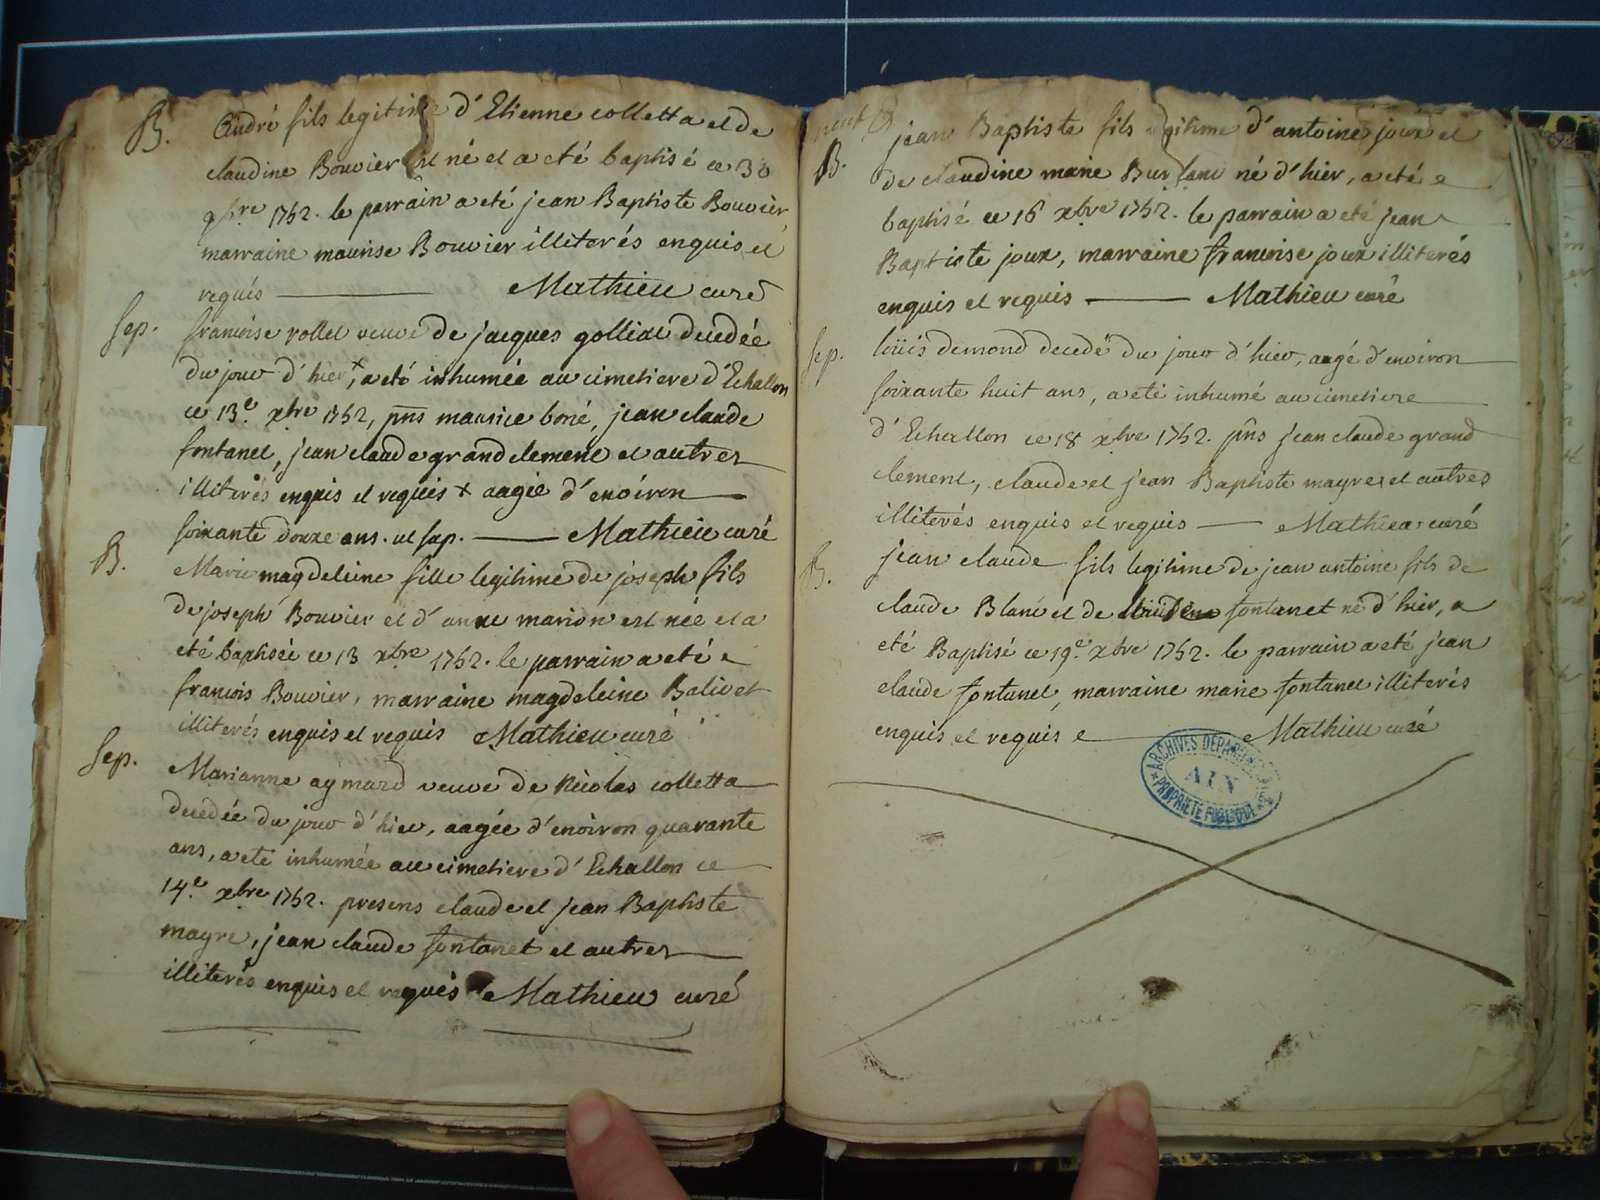 B. André fils legitime d'Etienne colletta et de
claudine Bouvier est né et a eté baptisé ce 30
9bre 1752. le parrain a eté jean Baptiste Bouvier
marraine maurise Bouvier illiterés enquis et
requis Mathieu curé
Sep. francoise rollet veuve de jacques golliat decedée
du jour d'hier, + a eté inhumée au cimetiere d'Echallon
ce 13e xbre 1752, pns maurice boné, jean claude
fontanet, jean claude grandclement et autres
illiterés enquis et requis + aagée d'environ
soixante douze ans. ut sup. Mathieu curé
B. Marie magdeleine fille legitime de joseph fils
de joseph Bouvier et d'anne marion est née et a
eté baptisée ce 13 xbre 1752. le parrain a eté
francois Bouvier, marraine magdeleine Balivet
illiterés enquis et requis Mathieu curé
Sep. Marianne aymard veuve de Nicolas colletta
decedée du jour d'hier, aagée d'environ quarante
ans, a eté inhumée au cimetiere d'Echallon ce
14e xbre 1752. presens claude et jean Baptiste
mayre, jean claude fontanet et autres
illiterés enquis et requis Mathieu curé
B. jean Baptiste fils legitime d'antoine joux et
de claudine marie né d'hier, a eté
baptisé ce 16 xbre 1752. le parrain a eté jean
Baptiste joux, marraine francoise joux illiterés
enquis et requis Mathieu curé
Sep. loüis demond decedé du jour d'hier, aagé d'environ
soixante huit ans, a eté inhumé au cimetiere
d'Echallon ce 18 xbre 1752. pns jean claude grand
clement, claude et jean Baptiste mayre et autres
illiterés enquis et requis Mathieu curé
B. jean claude fils legitime de jean antoine fils de
claude Blanc et de fontanet né d'hier, a
eté Baptisé ce 19e xbre 1752. le parrain a eté jean
claude fontanet, marraine marie fontanet illiterés
enquis et requis Mathieu curé
ARCHIVES DEPARTEMENTALES
AIN
PROPRIETE PUBLIQUE